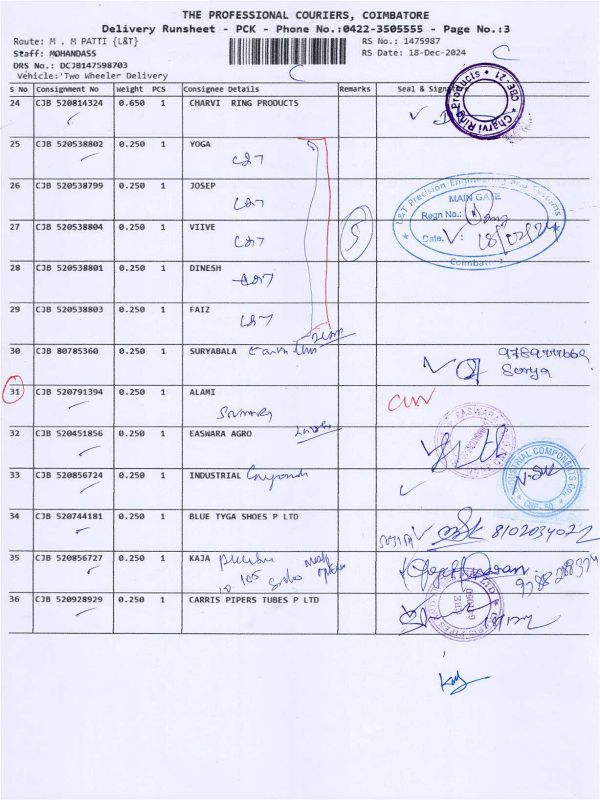 THE PROFESSIONAL COURIERS, COIMBATORE
Delivery Runsheet - PCK - Phone No.:0422-3505555 - Page No.:3
Route: M . M PATTI {L&T} RS No.: 1475987
Staff: MOHANDASS RS Date: 18-Dec-2024
DRS No.: DCJB147598703
Vehicle: Two Wheeler Delivery
S No Consignment No Weight PCS Consignee Details Remarks Seal & Signature
24 CJB 520814324 0.650 1 CHARVI RING PRODUCTS
Charvi Ring Products CBE-21
25 CJB 520538802 0.250 1 YOGA
L&T
26 CJB 520538799 0.250 1 JOSEP
L&T
L&T Precision Engineering and Systems
MAIN GATE
Regn No.:
Date.
Coimbatore
27 CJB 520538804 0.250 1 VIIVE
L&T 5
28 CJB 520538801 0.250 1 DINESH
L&T
29 CJB 520538803 0.250 1 FAIZ
L&T
30 CJB 80785360 0.250 1 SURYABALA
Surya
31 CJB 520791394 0.250 1 ALAMI
32 CJB 520451856 0.250 1 EASWARA AGRO
EASWARA
33 CJB 520856724 0.250 1 INDUSTRIAL
INDUSTRIAL COMPONENTS
34 CJB 520744181 0.250 1 BLUE TYGA SHOES P LTD
8102034022
35 CJB 520856727 0.250 1 KAJA
36 CJB 520928929 0.250 1 CARRIS PIPERS TUBES P LTD